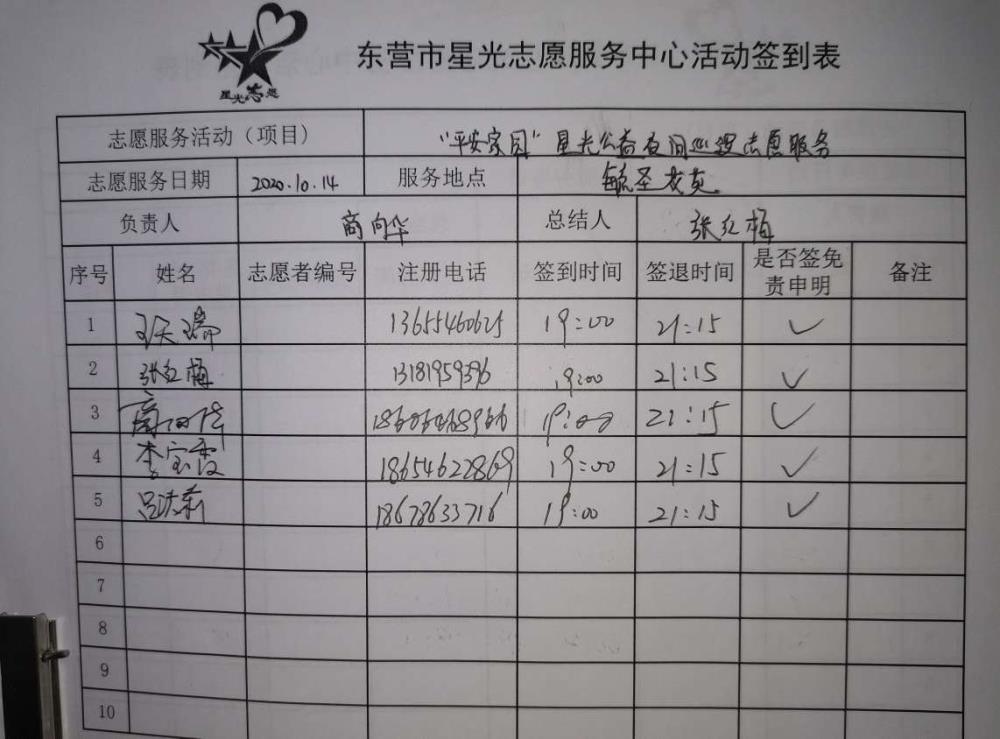 东营市星光志愿服务中心活动签到表
星光志愿
志愿服务活动（项目） “平安家园”星光公益夜间巡逻志愿服务
志愿服务日期 2020.10.14 服务地点
负责人 商向华 总结人 张红梅
序号 姓名 志愿者编号 注册电话 签到时间 签退时间 是否签免责申明 备注
1 13655460625 19:00 21:15 ✓
2 张红梅 13181959396 19:00 21:15 ✓
3 商向华 19:00 21:15 ✓
4 李宝霞 18654622869 19:00 21:15 ✓
5 18678633716 19:00 21:15 ✓
6
7
8
9
10